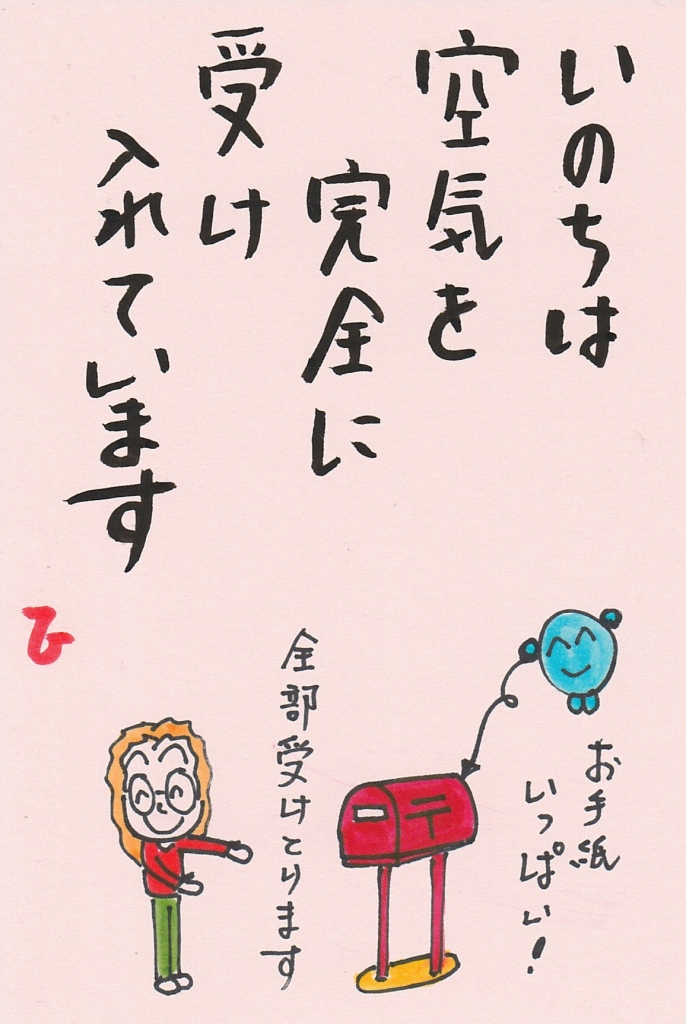 いのちは
空気を
完全に
受け
入れています
ひ
お手紙
いっぱい!
〒
全部受けとります